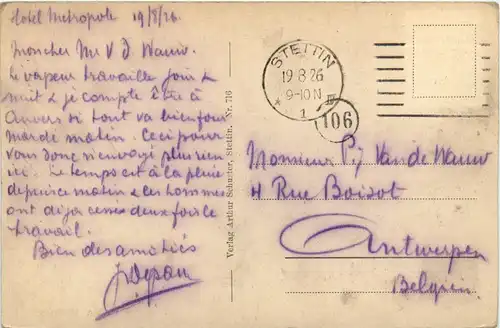 Hotel Metropole 19/8/26
Mon cher Mr V d Wauw.
Le vapeur travaille jour &
nuit & je compte être à
Anvers si tout va bien pour
mardi matin. Ceci pour
vous donc n'envoyé plus rien
ici. Le temps est à la pluie
depuis ce matin & les hommes
ont dija cessé deux fois le
travail.
Bien des amitiés
Verlag Arthur Schuster, Stettin. Nr. 716
STETTIN
19 8 26
9-10 N
* 1
106
Monsieur Van de Wauw
4 Rue Boisot
Antwerpen
Belgien